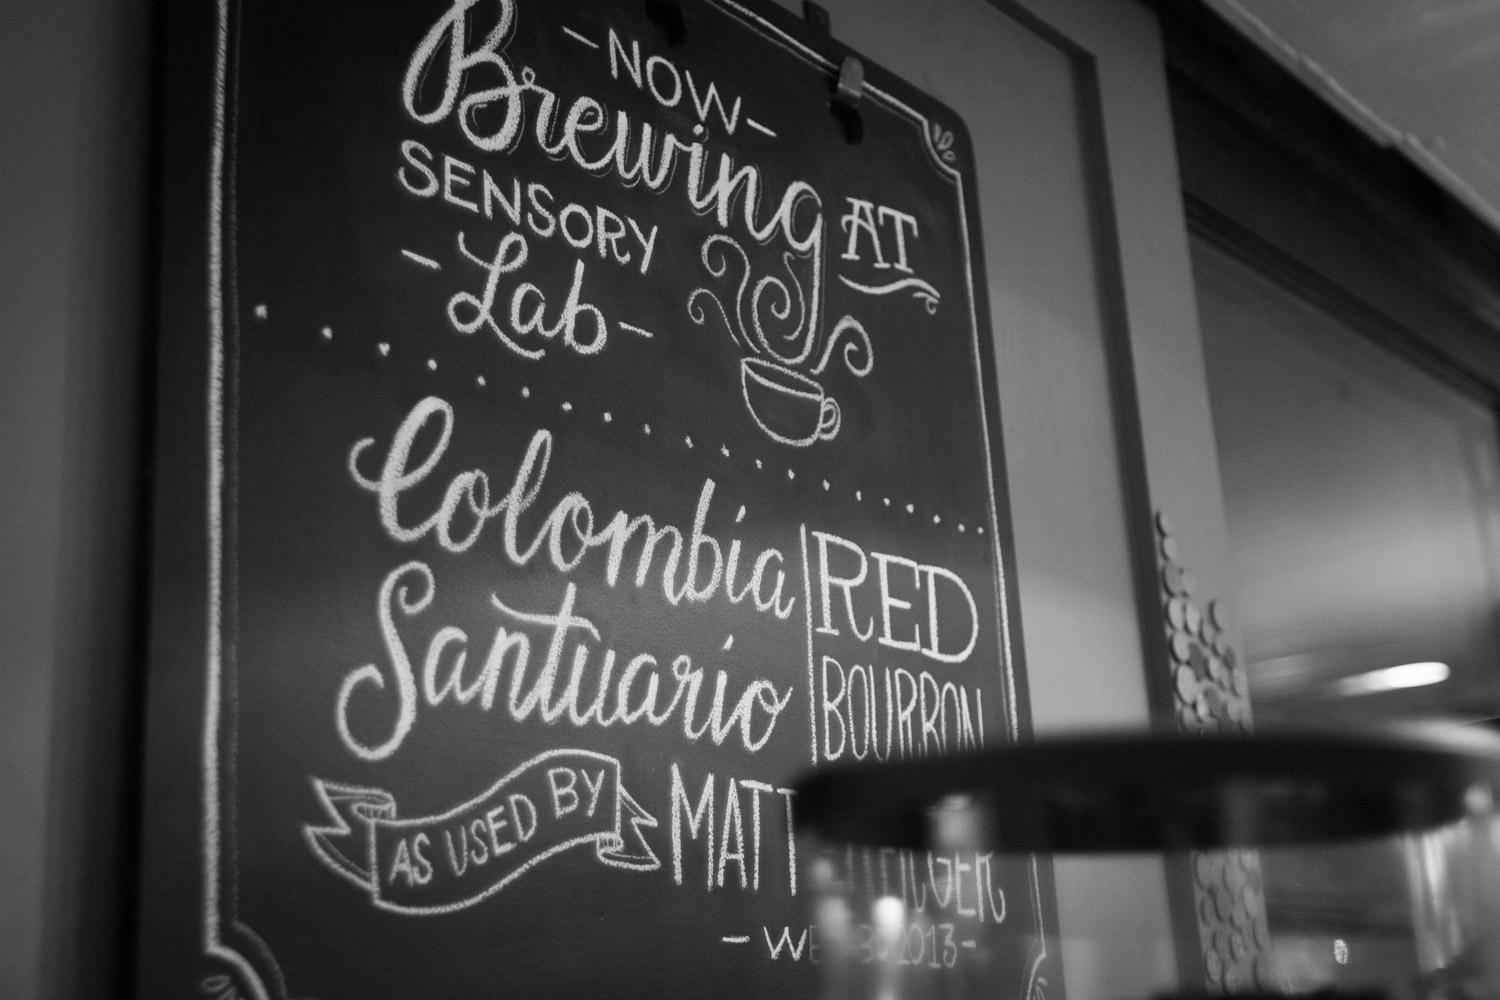 -NOW-
Brewing AT
SENSORY
-Lab-
Colombia
Santuario
RED
BOURBON
AS USED BY
MATT
2013-